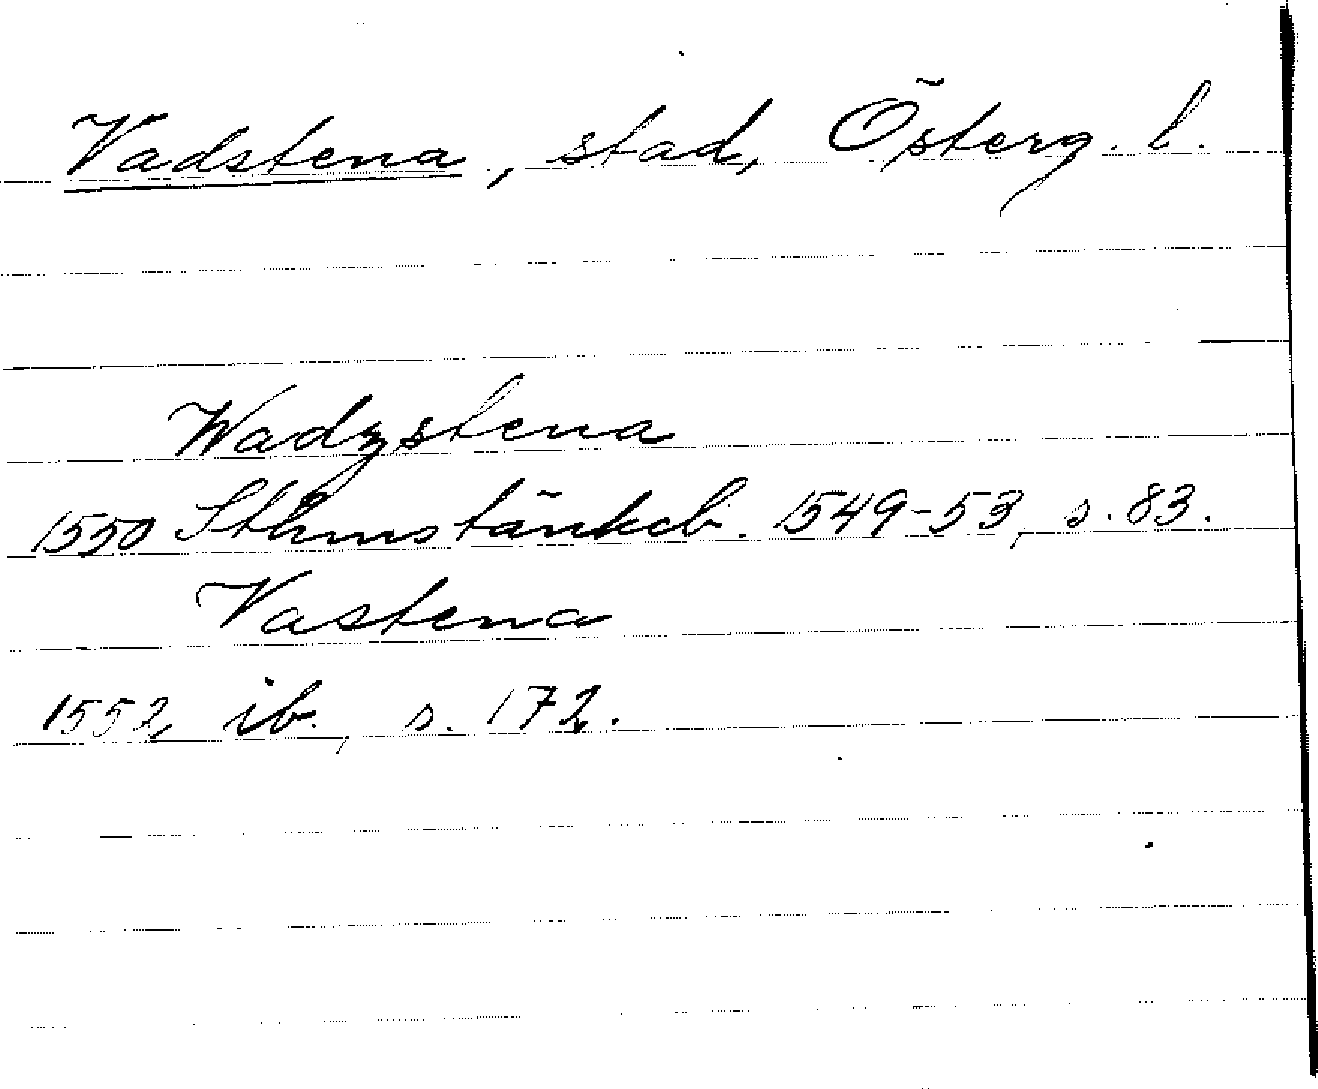 Vadstena, stad, Österg. l.
Wadzstena
1550 Sthms tänkeb. 1549-53, s. 83.
Vastena
1552, ib., s. 172.